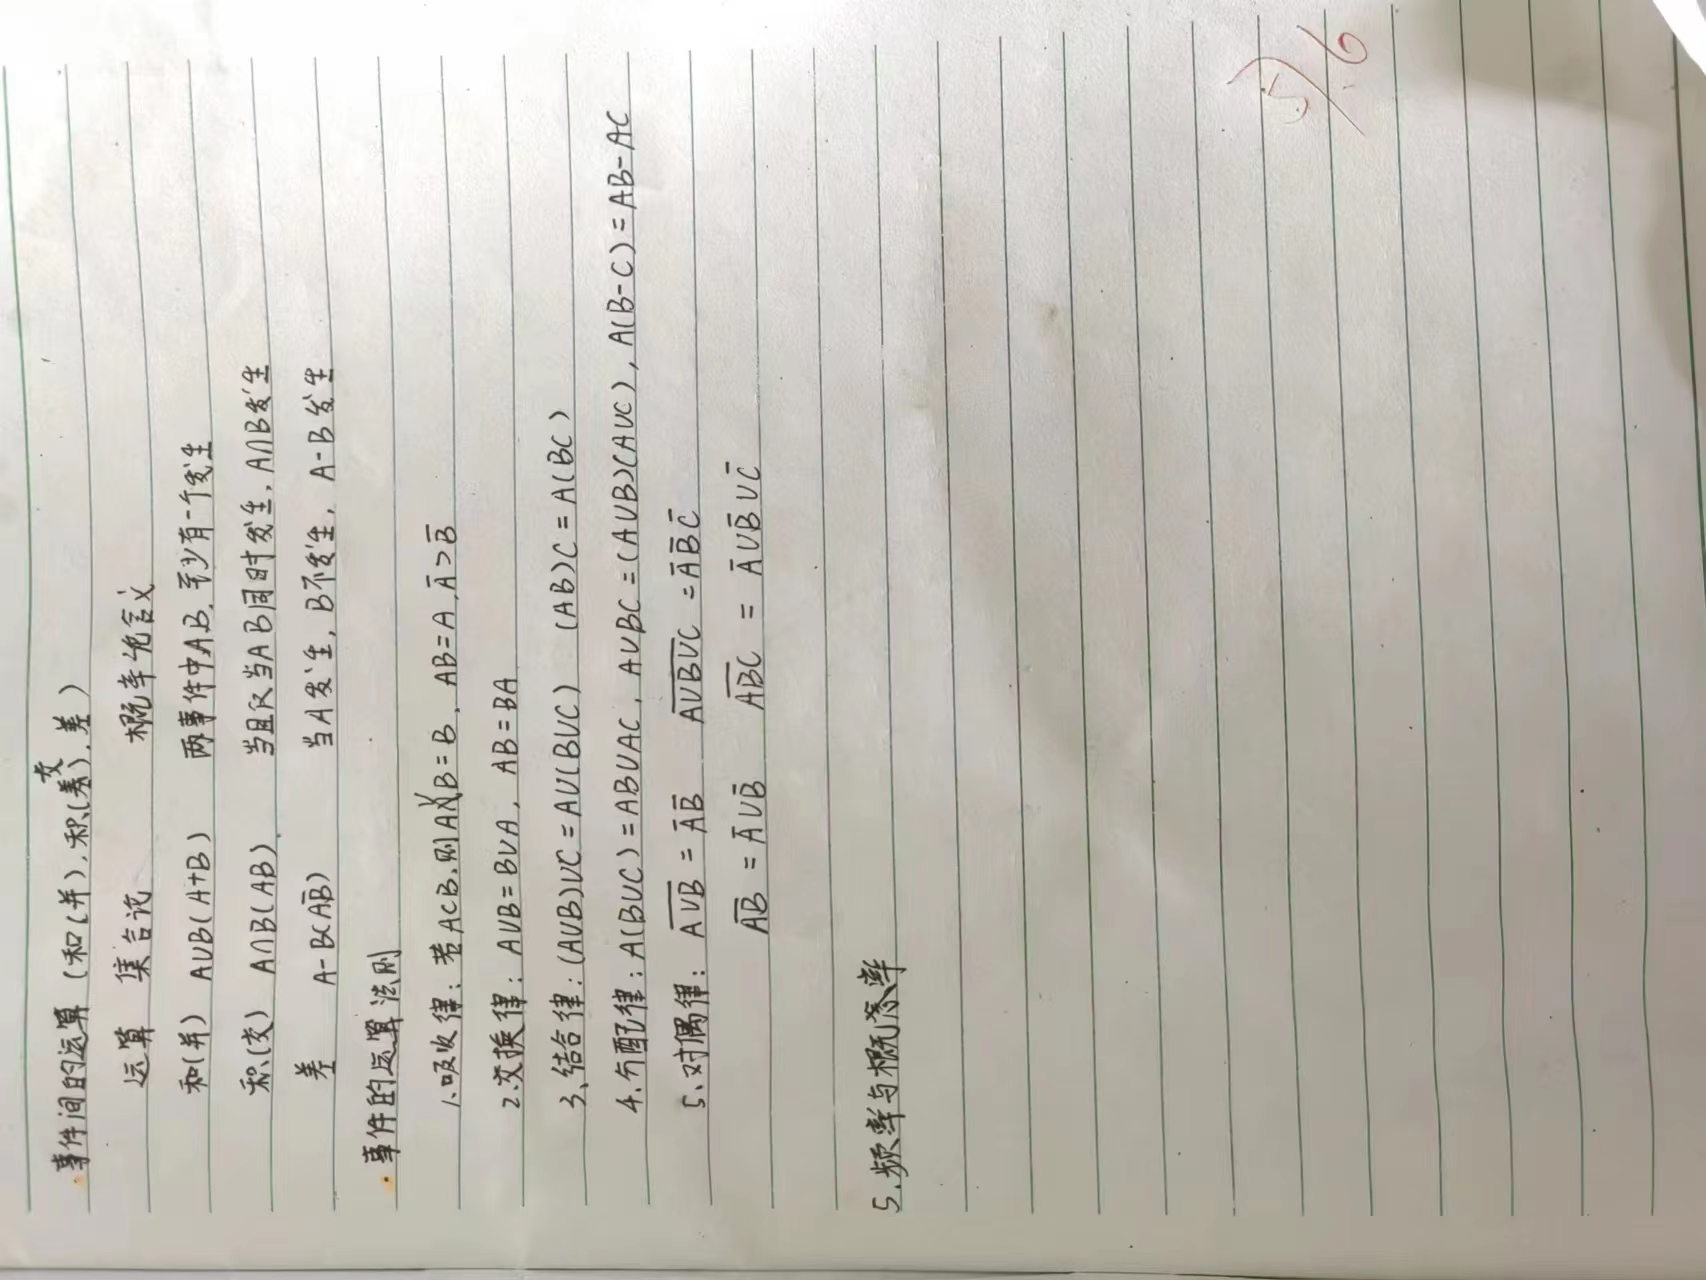 · 事件间的运算 (和(并), 积(交), 差)
运算 集合论 概率论含义
和(并) A∪B(A+B) 两事件中AB, 至少有一个发生
积(交) A∩B(AB) 当且仅当AB同时发生, A∩B发生
差 A-B(AB̅) 当A发生, B不发生, A-B发生
· 事件的运算法则
1、吸收律: 若A⊂B, 则A∪B=B, AB=A, A̅⊃B̅
2.交换律: A∪B=B∪A, AB=BA
3、结合律: (A∪B)∪C=A∪(B∪C) (AB)C=A(BC)
4.分配律: A(B∪C)=AB∪AC, A∪BC=(A∪B)(A∪C), A(B-C)=AB-AC
5、对偶律: A̅∪̅B̅ = A̅ B̅ A̅∪̅B̅∪̅C̅ = A̅ B̅ C̅
A̅B̅ = A̅ ∪ B̅ A̅B̅C̅ = A̅ ∪ B̅ ∪ C̅
5.频率与概率
5/6